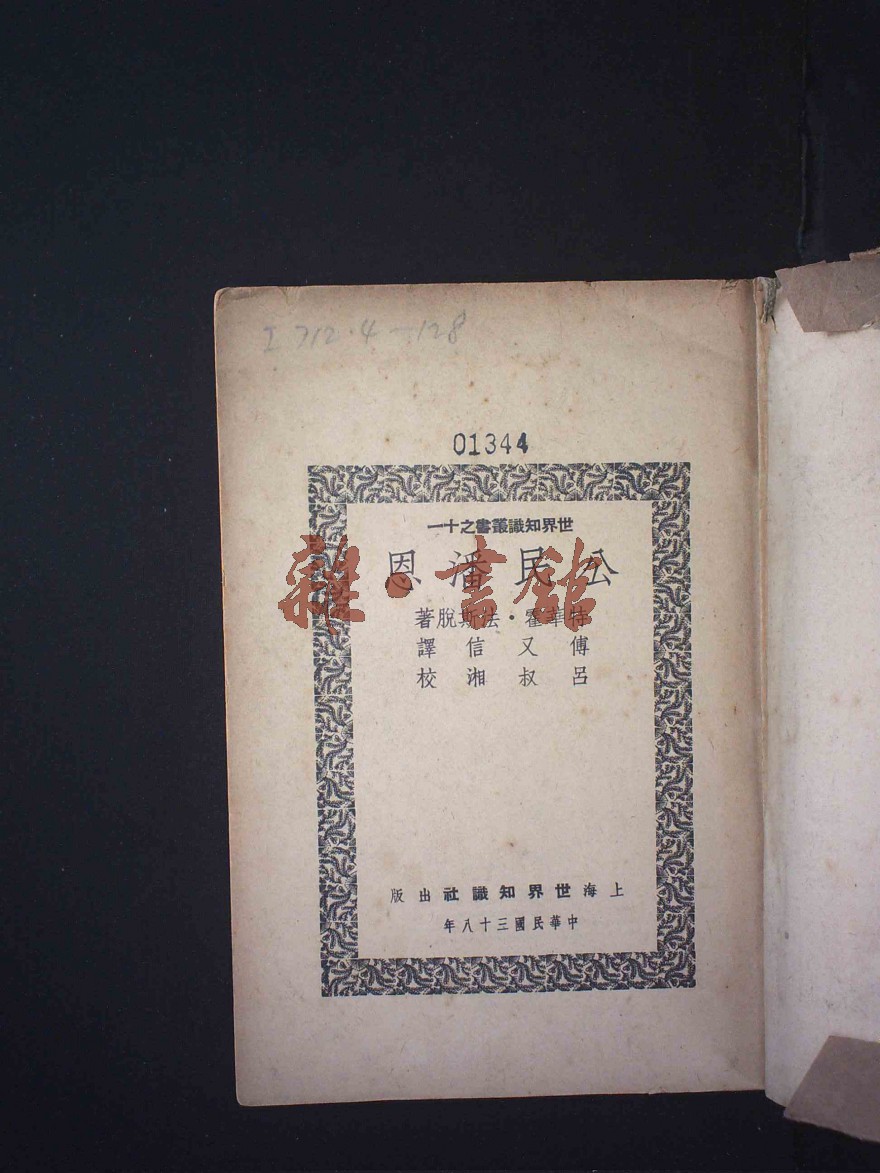 I 712·4—128
01344
世界知識叢書之十一
公民潘恩
雜·書館
特華霍·法斯脫著
傅又信譯
呂叔湘校
上海世界知識社出版
中華民國三十八年